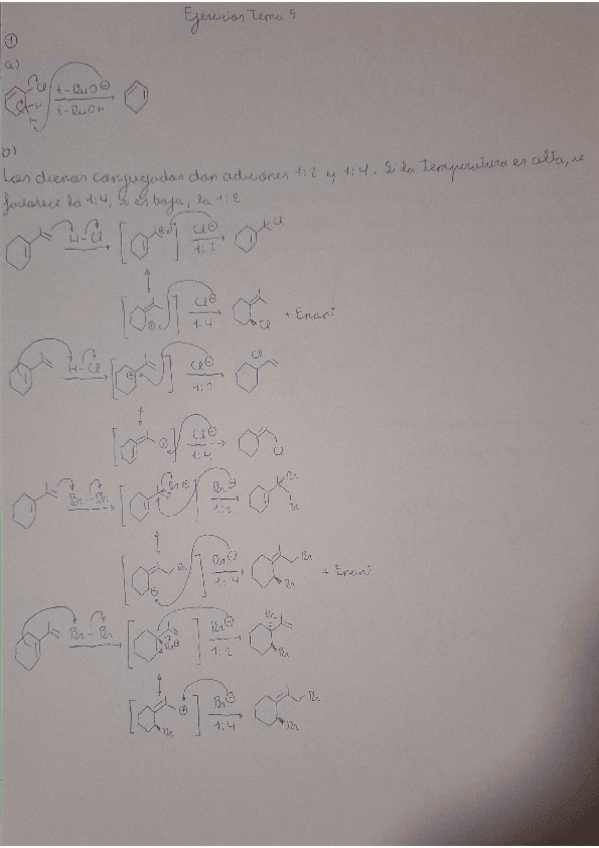 Ejercicios Tema 5
1
a)
Cl
H
H
t-BuO⊖
t-BuOH
b)
Los dienos conjugados dan adiciones 1:2 y 1:4. Si la temperatura es alta, se
favorece la 1:4, si es baja, la 1:2
H-Cl [ ⊕ ] Cl⊖ 1:2 Cl
[ ⊕ ] Cl⊖ 1:4 Cl + Enant
H-Cl [ ⊕ ] Cl⊖ 1:2 Cl
[ ⊕ ] Cl⊖ 1:4 Cl
Br-Br [ Br⊕ ] Br⊖ 1:2 Br Br
[ ⊕ Br ] Br⊖ 1:4 Br Br + Enant
Br-Br [ Br⊕ ] Br⊖ 1:2 Br Br
[ ⊕ Br ] Br⊖ 1:4 Br Br